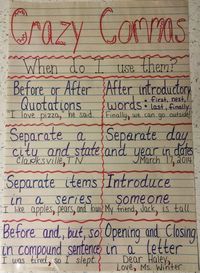 Crazy Commas
When do I use them?
Before or After
Quotations
I love pizza, he said.
After introductory
words: first, next,
last, finally
Finally, we can go outside!
Separate a
city and state
Clarksville, TN
Separate day
and year in dates
March 11, 2014
Separate items
in a series
I like apples, pears, and
Introduce
someone
My friend, Jack, is tall.
Before and, but, so
in compound sentence
I was tired, so I slept.
Opening and Closing
in a letter
Dear Haley,
Love, Ms. Winter